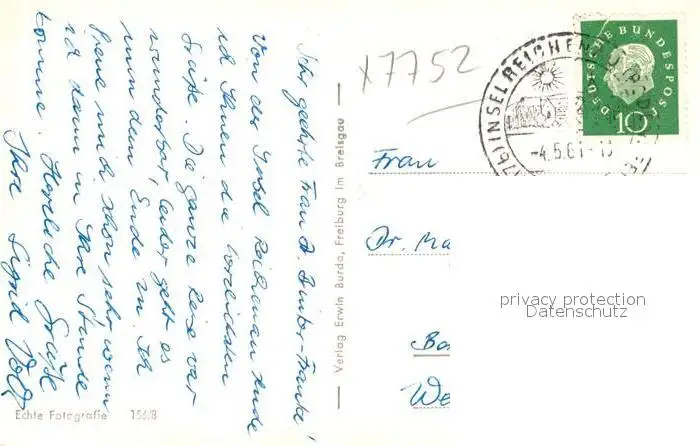 Sehr geehrte Frau Dr. Binter-Franke!
Von der Insel Reichenau sende
ich Ihnen die herzlichsten
Grüße. Die ganze Reise war
wunderbar, leider geht es
nun dem Ende zu. Ich
freue mich schon sehr wenn
ich dann in Ihre Stunde
komme. Herzliche Grüße
Ihre Sigrid
Echte Fotografie 156/8
Verlag Erwin Burda, Freiburg im Breisgau
x7752
INSEL REICHENAU
-4.5.61-
DEUTSCHE BUNDESPOST
10
Frau
Dr. Ma
privacy protection
Datenschutz